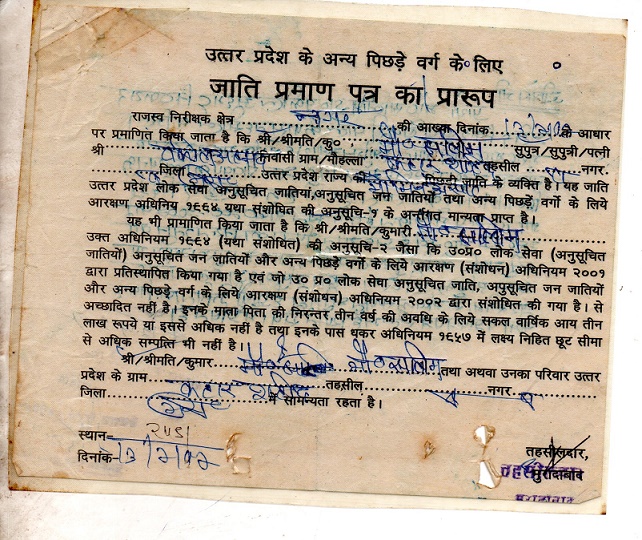 उत्तर प्रदेश के अन्य पिछड़े वर्ग के० लिए
जाति प्रमाण पत्र का प्रारूप
राजस्व निरीक्षक क्षेत्र नगर की आख्या दिनांक के आधार
पर प्रमाणित किया जाता है कि श्री/श्रीमति/कु० मौ० सालिम सुपुत्र/सुपुत्री/पत्नी
श्री निवासी ग्राम/मौहल्ला तहसील नगर.
जिला उत्तर प्रदेश राज्य की पिछड़ी जाति के व्यक्ति है। यह जाति
उत्तर प्रदेश लोक सेवा अनुसूचित जातियां,अनुसूचित जन जातियों तथा अन्य पिछड़े वर्गो के लिये
आरक्षण अधिनिय १९९४ यथा संशोधित की अनुसूचि-१ के अन्तर्गत मान्यता प्राप्त है।
यह भी प्रामाणित किया जाता है कि श्री/श्रीमति/कुमारी मौ० सालिम
उक्त अधिनियम १९९४ (यथा संशोधित) की अनुसूचि-२ जैसा कि उ०प्र० लोक सेवा (अनुसूचित
जातियों) अनुसूचित जन ज़ातियों और अन्य पिछड़ें वर्गो के लिये आरक्षण (संशोधन) अधिनियम २००१
द्वारा प्रतिस्थापित किया गया है एवं जो उ० प्र० लोक सेवा अनुसूचित जाति, अपुसूचित जन जातियों
और अन्य पिछड़े वर्ग के लिये आरक्षण (संशोधन) अधिनियम २००२ द्वारा संशोधित की गया है। से
अच्छादित नहीं है। इनके माता पिता की निरन्तर तीन वर्ष की अवधि के लिये सकल वार्षिक आय तीन
लाख रूपये या इससे अधिक नहीं है तथा इनके पास धकर अधिनियम १९५७ में लक्ष्य निहित छूट सीमा
से अधिक सम्पत्ति भी नहीं है।
श्री/श्रीमति/कुमार मौ० सालिम तथा अथवा उनका परिवार उत्तर
प्रदेश के ग्राम तहसील नगर
जिला में सामन्यता रहता है।
स्थान=
दिनांक-
तहसीलदार,
मुरादाबाद
तहसीलदार
मुरादाबाद